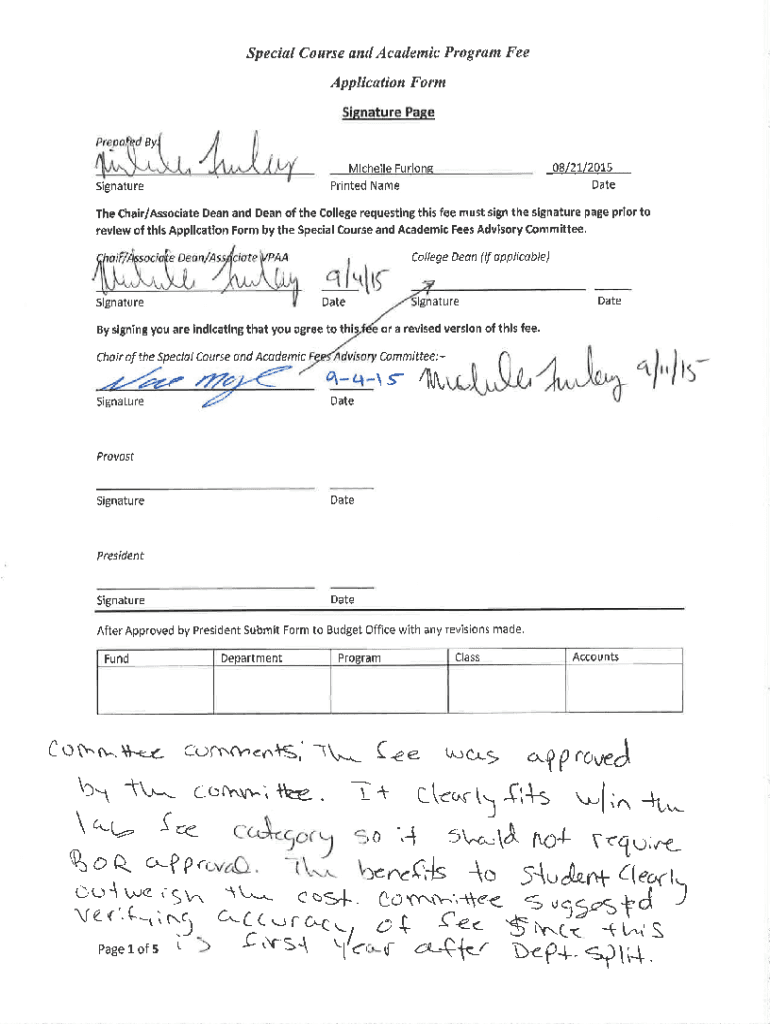 Special Course and Academic Program Fee
Application Form
Signature Page
Prepared By
Michelle Furlong
Michelle Furlong 08/21/2015
Signature Printed Name Date
The Chair/Associate Dean and Dean of the College requesting this fee must sign the signature page prior to
review of this Application Form by the Special Course and Academic Fees Advisory Committee.
Chair/Associate Dean/Associate VPAA College Dean (if applicable)
Michelle Furlong 9/4/15
Signature Date Signature Date
By signing you are indicating that you agree to this fee or a revised version of this fee.
Chair of the Special Course and Academic Fees Advisory Committee:-
9-4-15 Michelle Furlong 9/11/15
Signature Date
Provost
Signature Date
President
Signature Date
After Approved by President Submit Form to Budget Office with any revisions made.
Fund Department Program Class Accounts
Committee comments: The fee was approved
by the committee. It clearly fits w/in the
lab fee category so it should not require
BOR approval. The benefits to student clearly
outweigh the cost. Committee suggested
verifying accuracy of fee since this
Page 1 of 5 is first year after Dept. split.